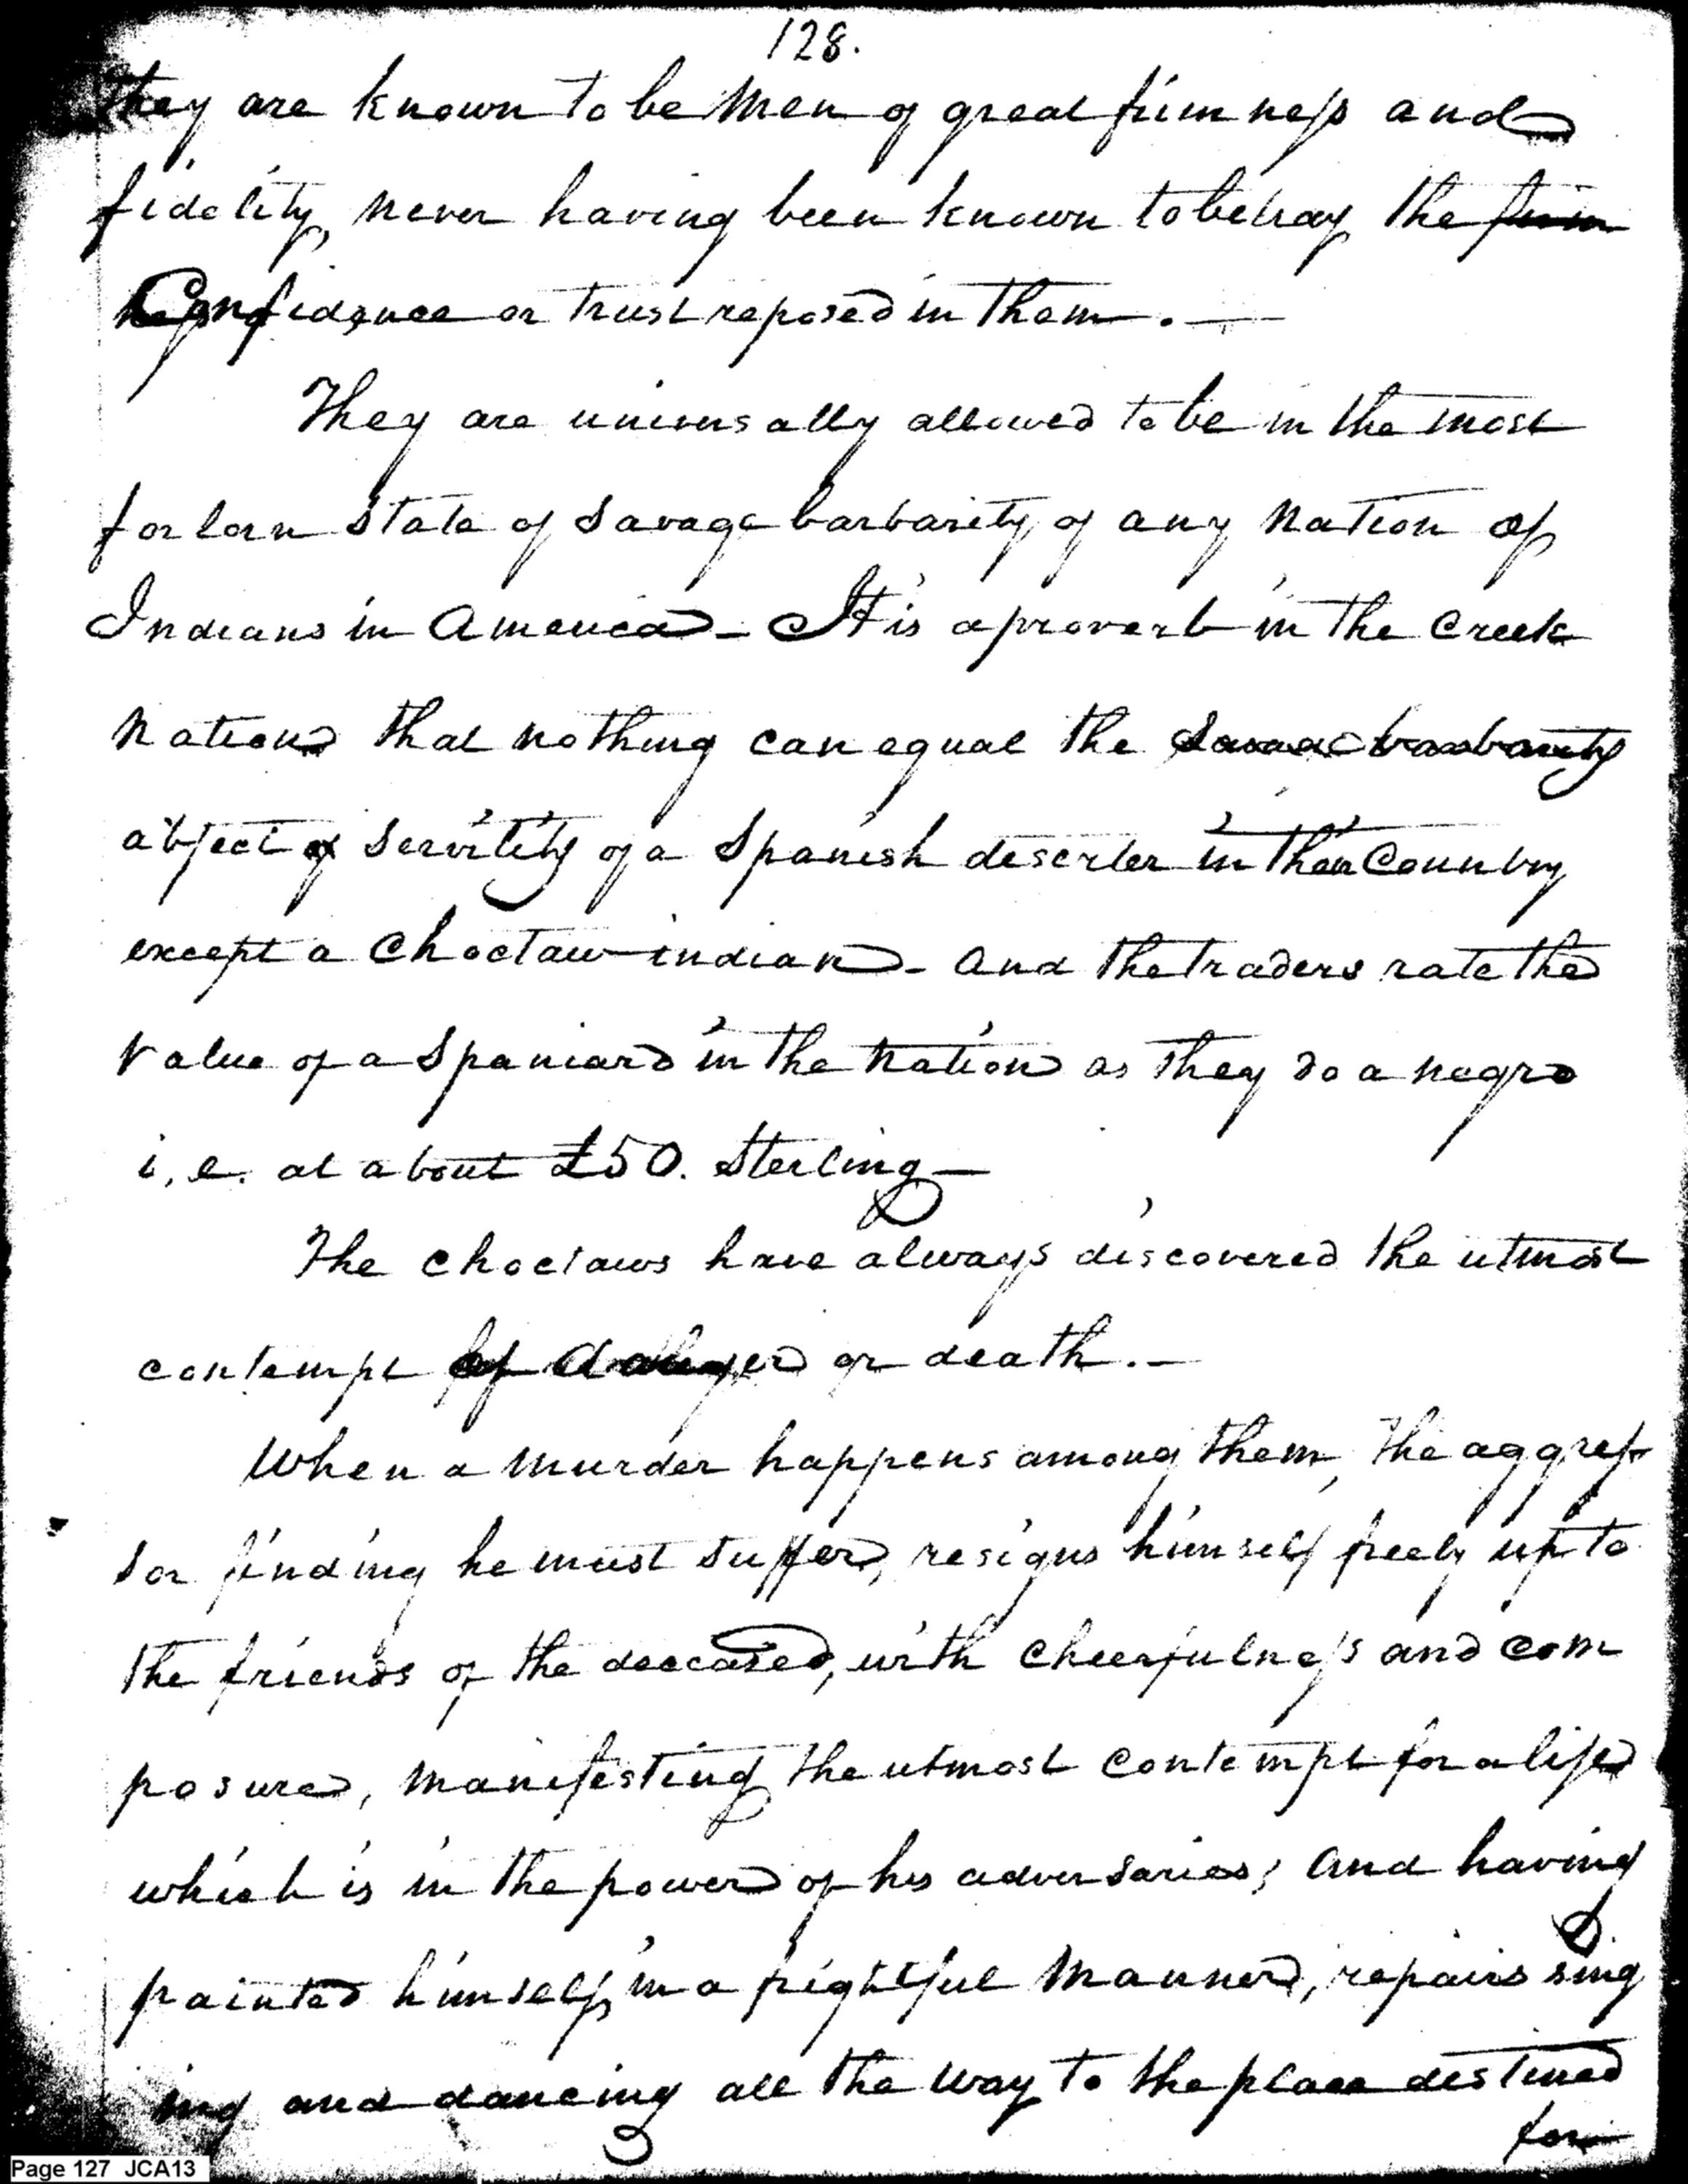 128.
they are known to be men of great firmness and
fidelity, never having been known to betray the firm
Confidence or trust reposed in them. —
They are universally allowed to be in the most
forlorn state of savage barbarity of any nation of
Indians in America - It is a proverb in the Creek
nation that nothing can equal the savage barbarity
abject servility of a Spanish deserter in their Country
except a Choctaw indian - and the traders rate the
value of a Spaniard in the nation as they do a negro
i, e. at about £50. Sterling —
The Choctaws have always discovered the utmost
contempt of danger or death. —
When a murder happens among them, the aggres
sor finding he must suffer, resigns himself freely up to
the friends of the deceased, with cheerfulness and com
posure, manifesting the utmost contempt for a life
which is in the power of his adversaries; and having
painted himself, in a frightful manner, repairs sing
ing and dancing all the way to the place destined
for
Page 127 JCA13